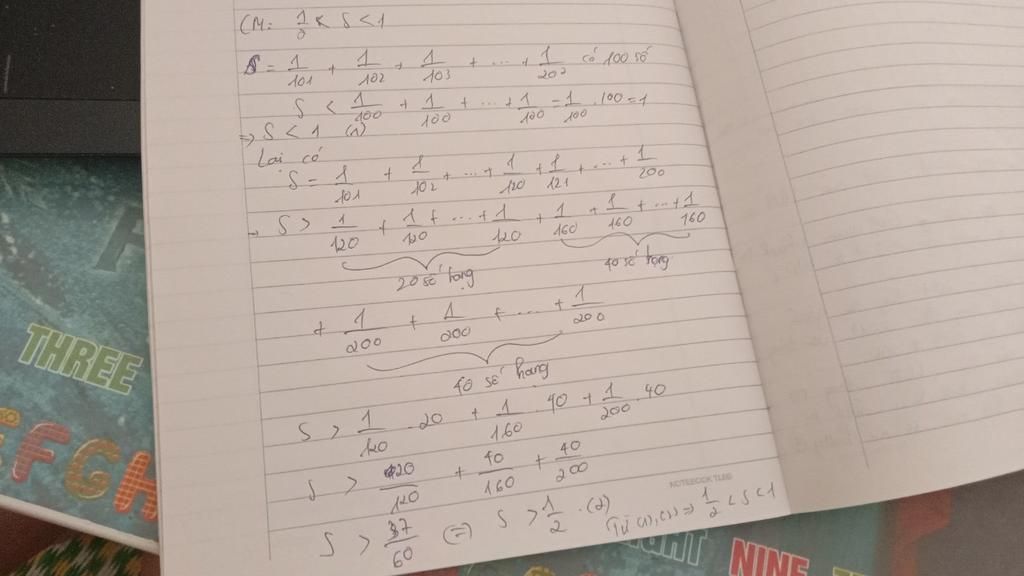 CM: 1/2 < S < 1
S = 1/101 + 1/102 + 1/103 + ... + 1/202 có 100 số
S < 1/100 + 1/100 + ... + 1/100 = 1/100 . 100 = 1
=> S < 1 (1)
Lại có
S = 1/101 + 1/102 + ... + 1/120 + 1/121 + ... + 1/200
→ S > 1/120 + 1/120 + ... + 1/120 + 1/160 + 1/160 + ... + 1/160
20 số hạng 40 số hạng
+ 1/200 + 1/200 + ... + 1/200
40 số hạng
S > 1/120 . 20 + 1/160 . 40 + 1/200 . 40
S > 20/120 + 40/160 + 40/200
NOTEBOOK
S > 37/60 (=) S > 1/2 . (2) Từ (1), (2) => 1/2 < S < 1
THREE
FGH
NINE